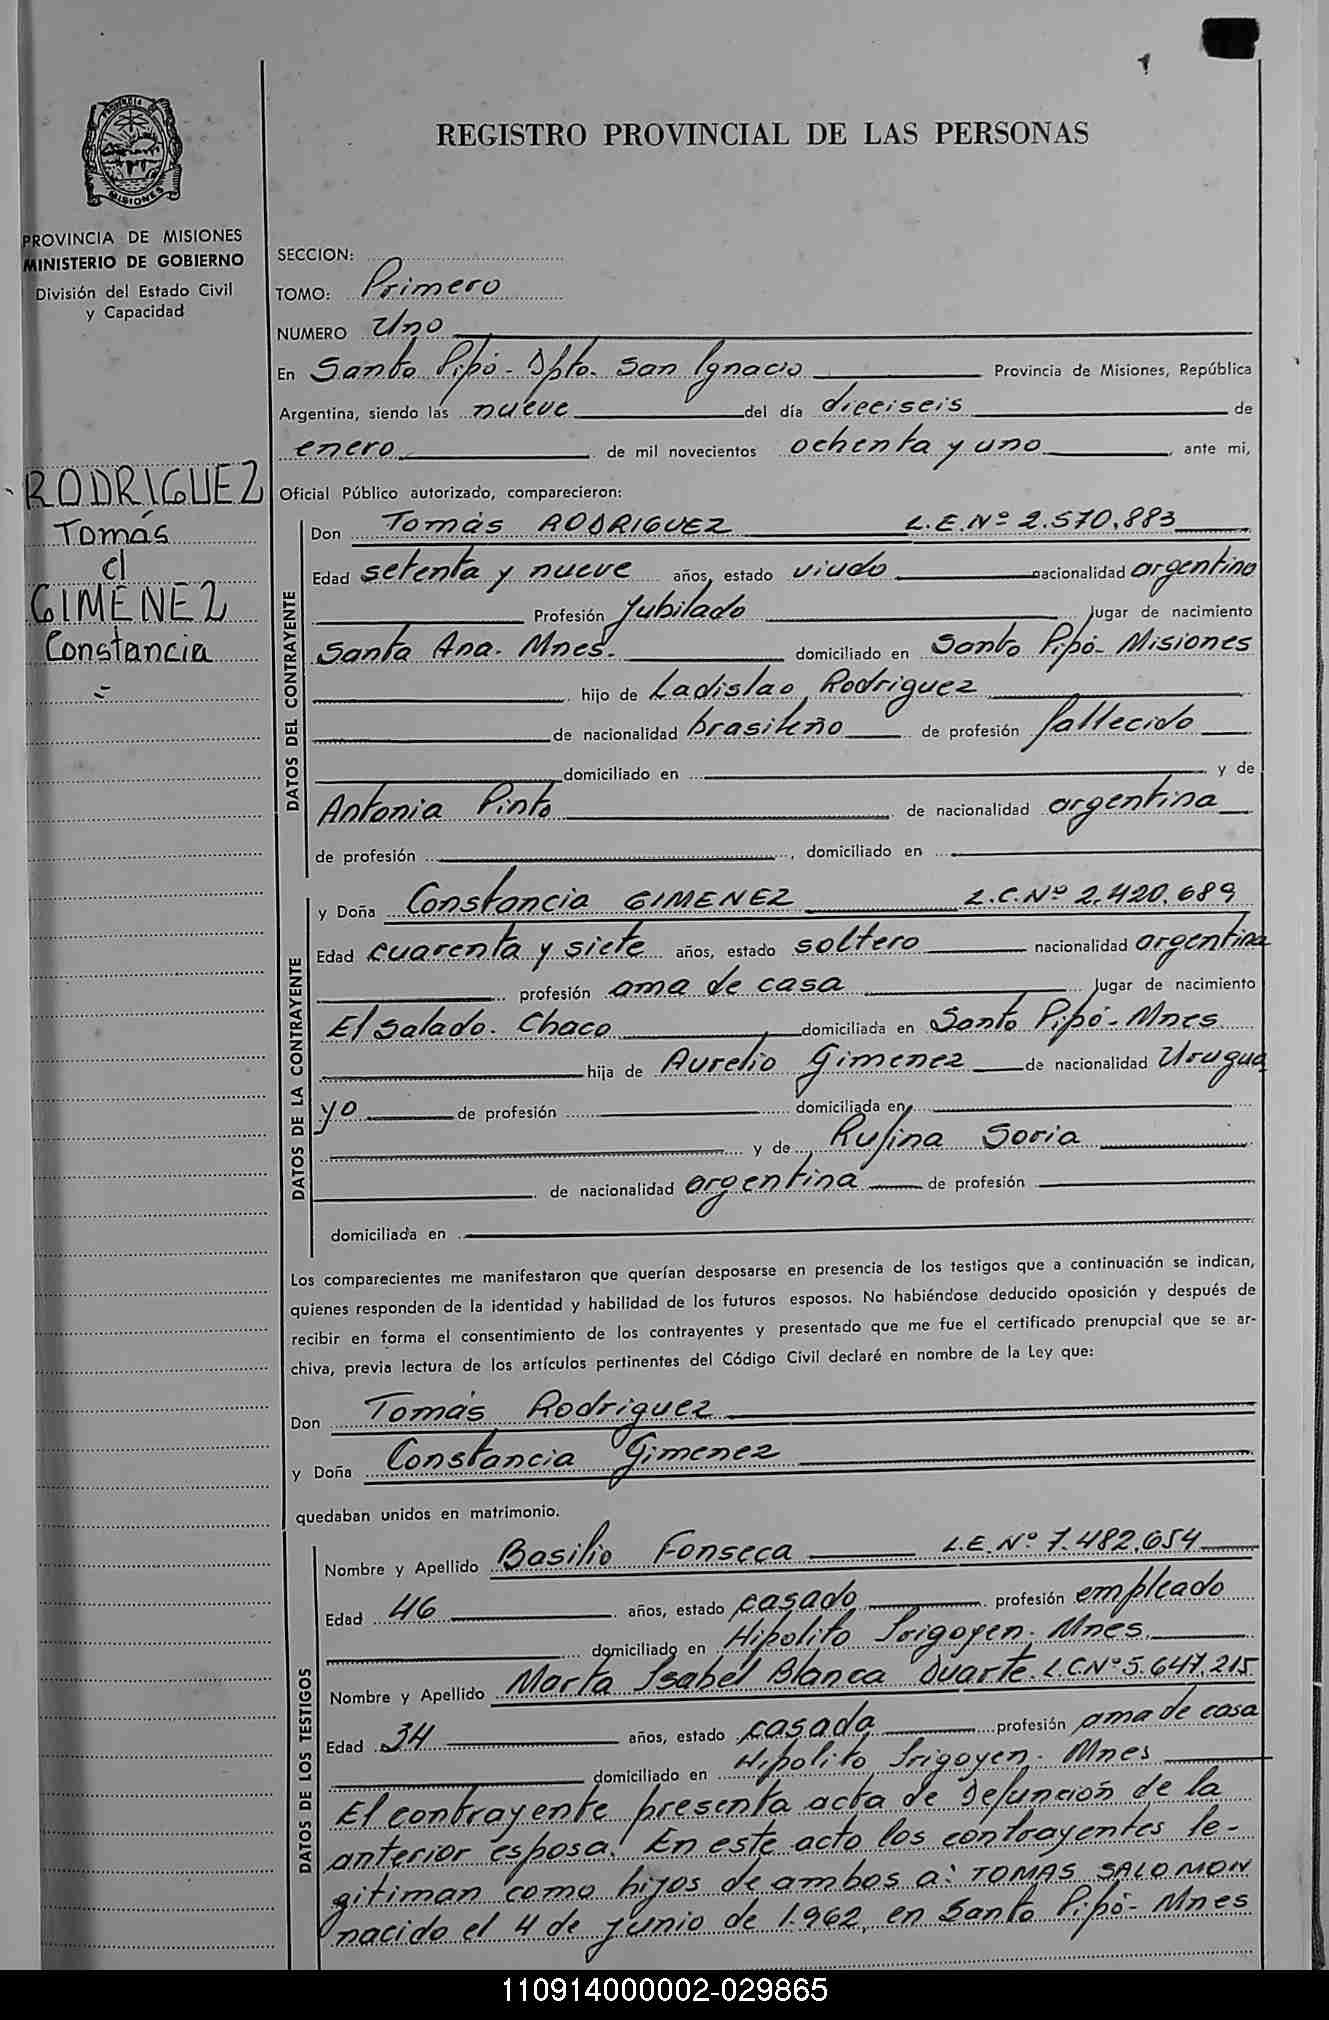 REGISTRO PROVINCIAL DE LAS PERSONAS
PROVINCIA DE MISIONES
PROVINCIA DE MISIONES
MINISTERIO DE GOBIERNO
División del Estado Civil
y Capacidad
RODRIGUEZ
Tomás
c/
GIMÉNEZ
Constancia
SECCION:
TOMO: Primero
NUMERO Uno
En Santo Pipó - Dpto. San Ignacio Provincia de Misiones, República
Argentina, siendo las nueve del día dieciseis de
enero de mil novecientos ochenta y uno, ante mi,
Oficial Público autorizado, comparecieron:
DATOS DEL CONTRAYENTE
Don Tomás RODRIGUEZ L.E.Nº 2.570.883
Edad setenta y nueve años, estado viudo nacionalidad argentino
Profesión Jubilado lugar de nacimiento
Santa Ana. Mnes. domiciliado en Santo Pipó - Misiones
hijo de Ladislao Rodriguez
de nacionalidad brasileño de profesión fallecido
domiciliado en y de
Antonia Pinto de nacionalidad argentina
de profesión , domiciliado en
DATOS DE LA CONTRAYENTE
y Doña Constancia GIMENEZ L.C.Nº 2.420.689
Edad cuarenta y siete años, estado soltero nacionalidad argentina
profesión ama de casa lugar de nacimiento
El Salado. Chaco domiciliada en Santo Pipó - Mnes
hija de Aurelio Gimenez de nacionalidad Urugua
yo de profesión domiciliada en
y de Rufina Soria
de nacionalidad argentina de profesión
domiciliada en
Los comparecientes me manifestaron que querían desposarse en presencia de los testigos que a continuación se indican,
quienes responden de la identidad y habilidad de los futuros esposos. No habiéndose deducido oposición y después de
recibir en forma el consentimiento de los contrayentes y presentado que me fue el certificado prenupcial que se ar-
chiva, previa lectura de los artículos pertinentes del Código Civil declaré en nombre de la Ley que:
Don Tomás Rodriguez
y Doña Constancia Gimenez
quedaban unidos en matrimonio.
DATOS DE LOS TESTIGOS
Nombre y Apellido Basilio Fonseca L.E.Nº 7.482.654
Edad 46 años, estado casado profesión empleado
domiciliado en Hipolito Irigoyen. Mnes.
Nombre y Apellido Marta Isabel Blanca Duarte. L.C.Nº 5.647.215
Edad 34 años, estado casada profesión ama de casa
domiciliado en Hipolito Irigoyen. Mnes
El contrayente presenta acta de defunción de la
anterior esposa. En este acto los contrayentes le-
gitiman como hijos de ambos a: TOMAS SALOMON
nacido el 4 de junio de 1.962, en Santo Pipó - Mnes
110914000002-029865